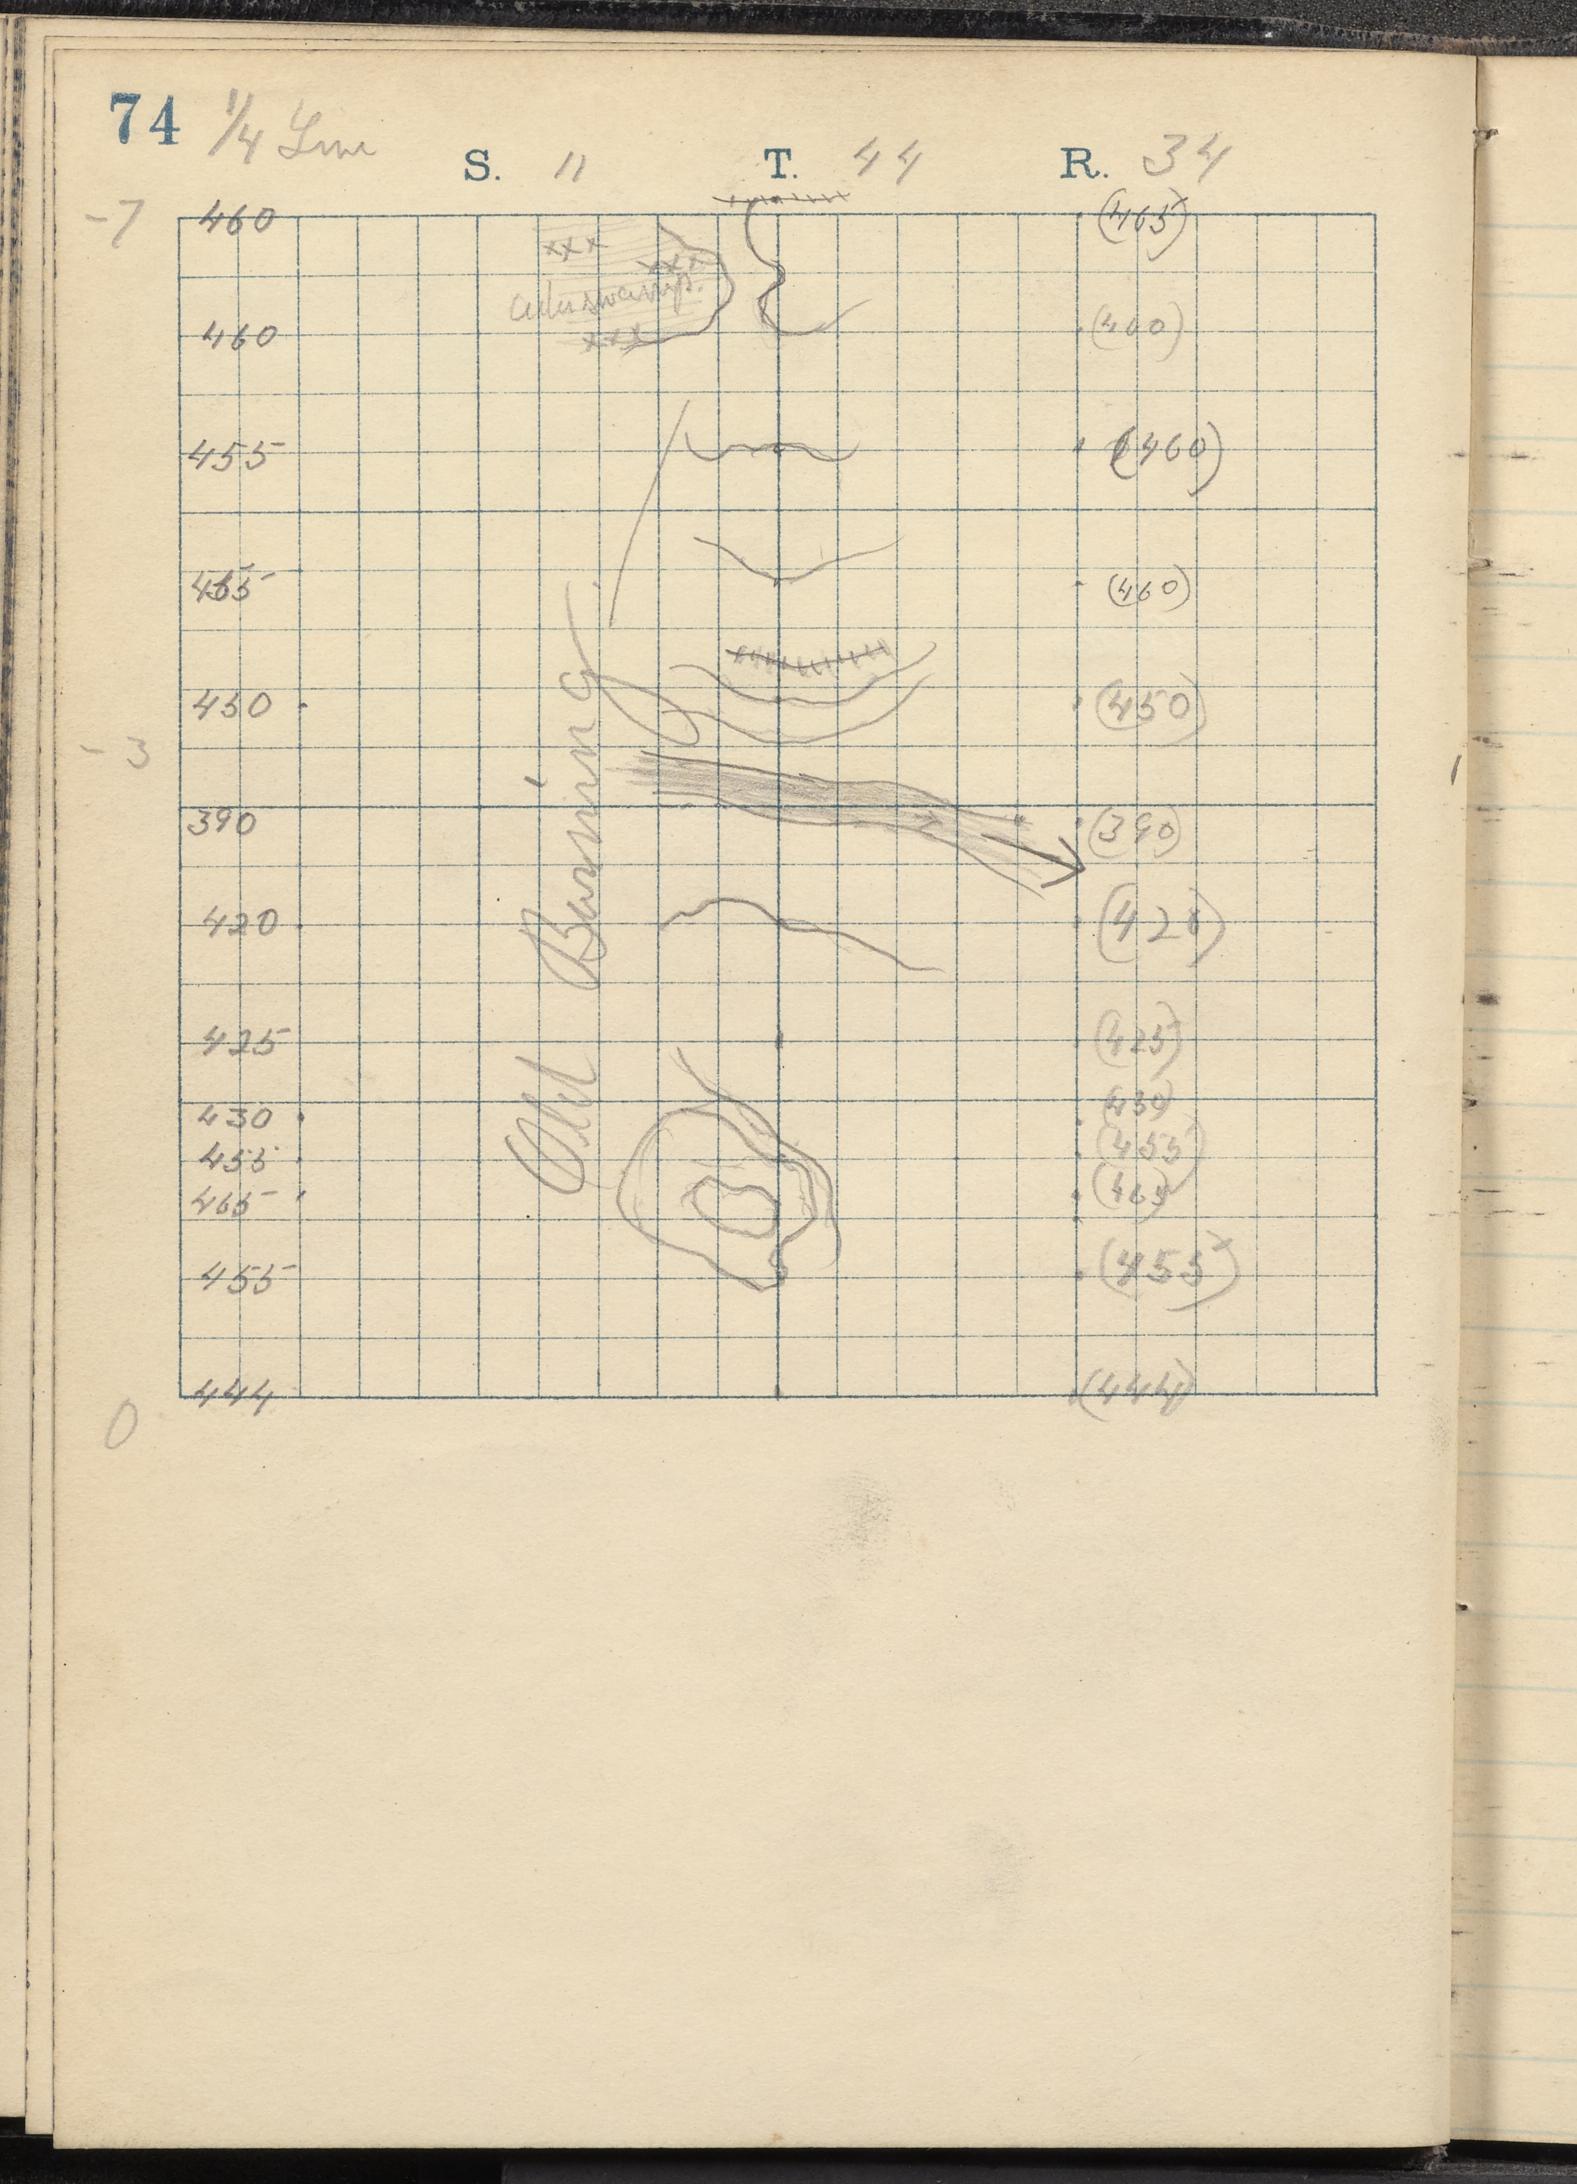 74 1/4 Line
S. 11 T. 44 R. 34
-7 460 (465)
xxx
xxx
cedar swamp.
xxx
460 (460)
455 (460)
465 (460)
450 (450)
-3
390 (390)
420 (420)
425 (425)
430 (430)
455 (455)
465 (465)
455 (455)
444 (444)
0
Old Burning